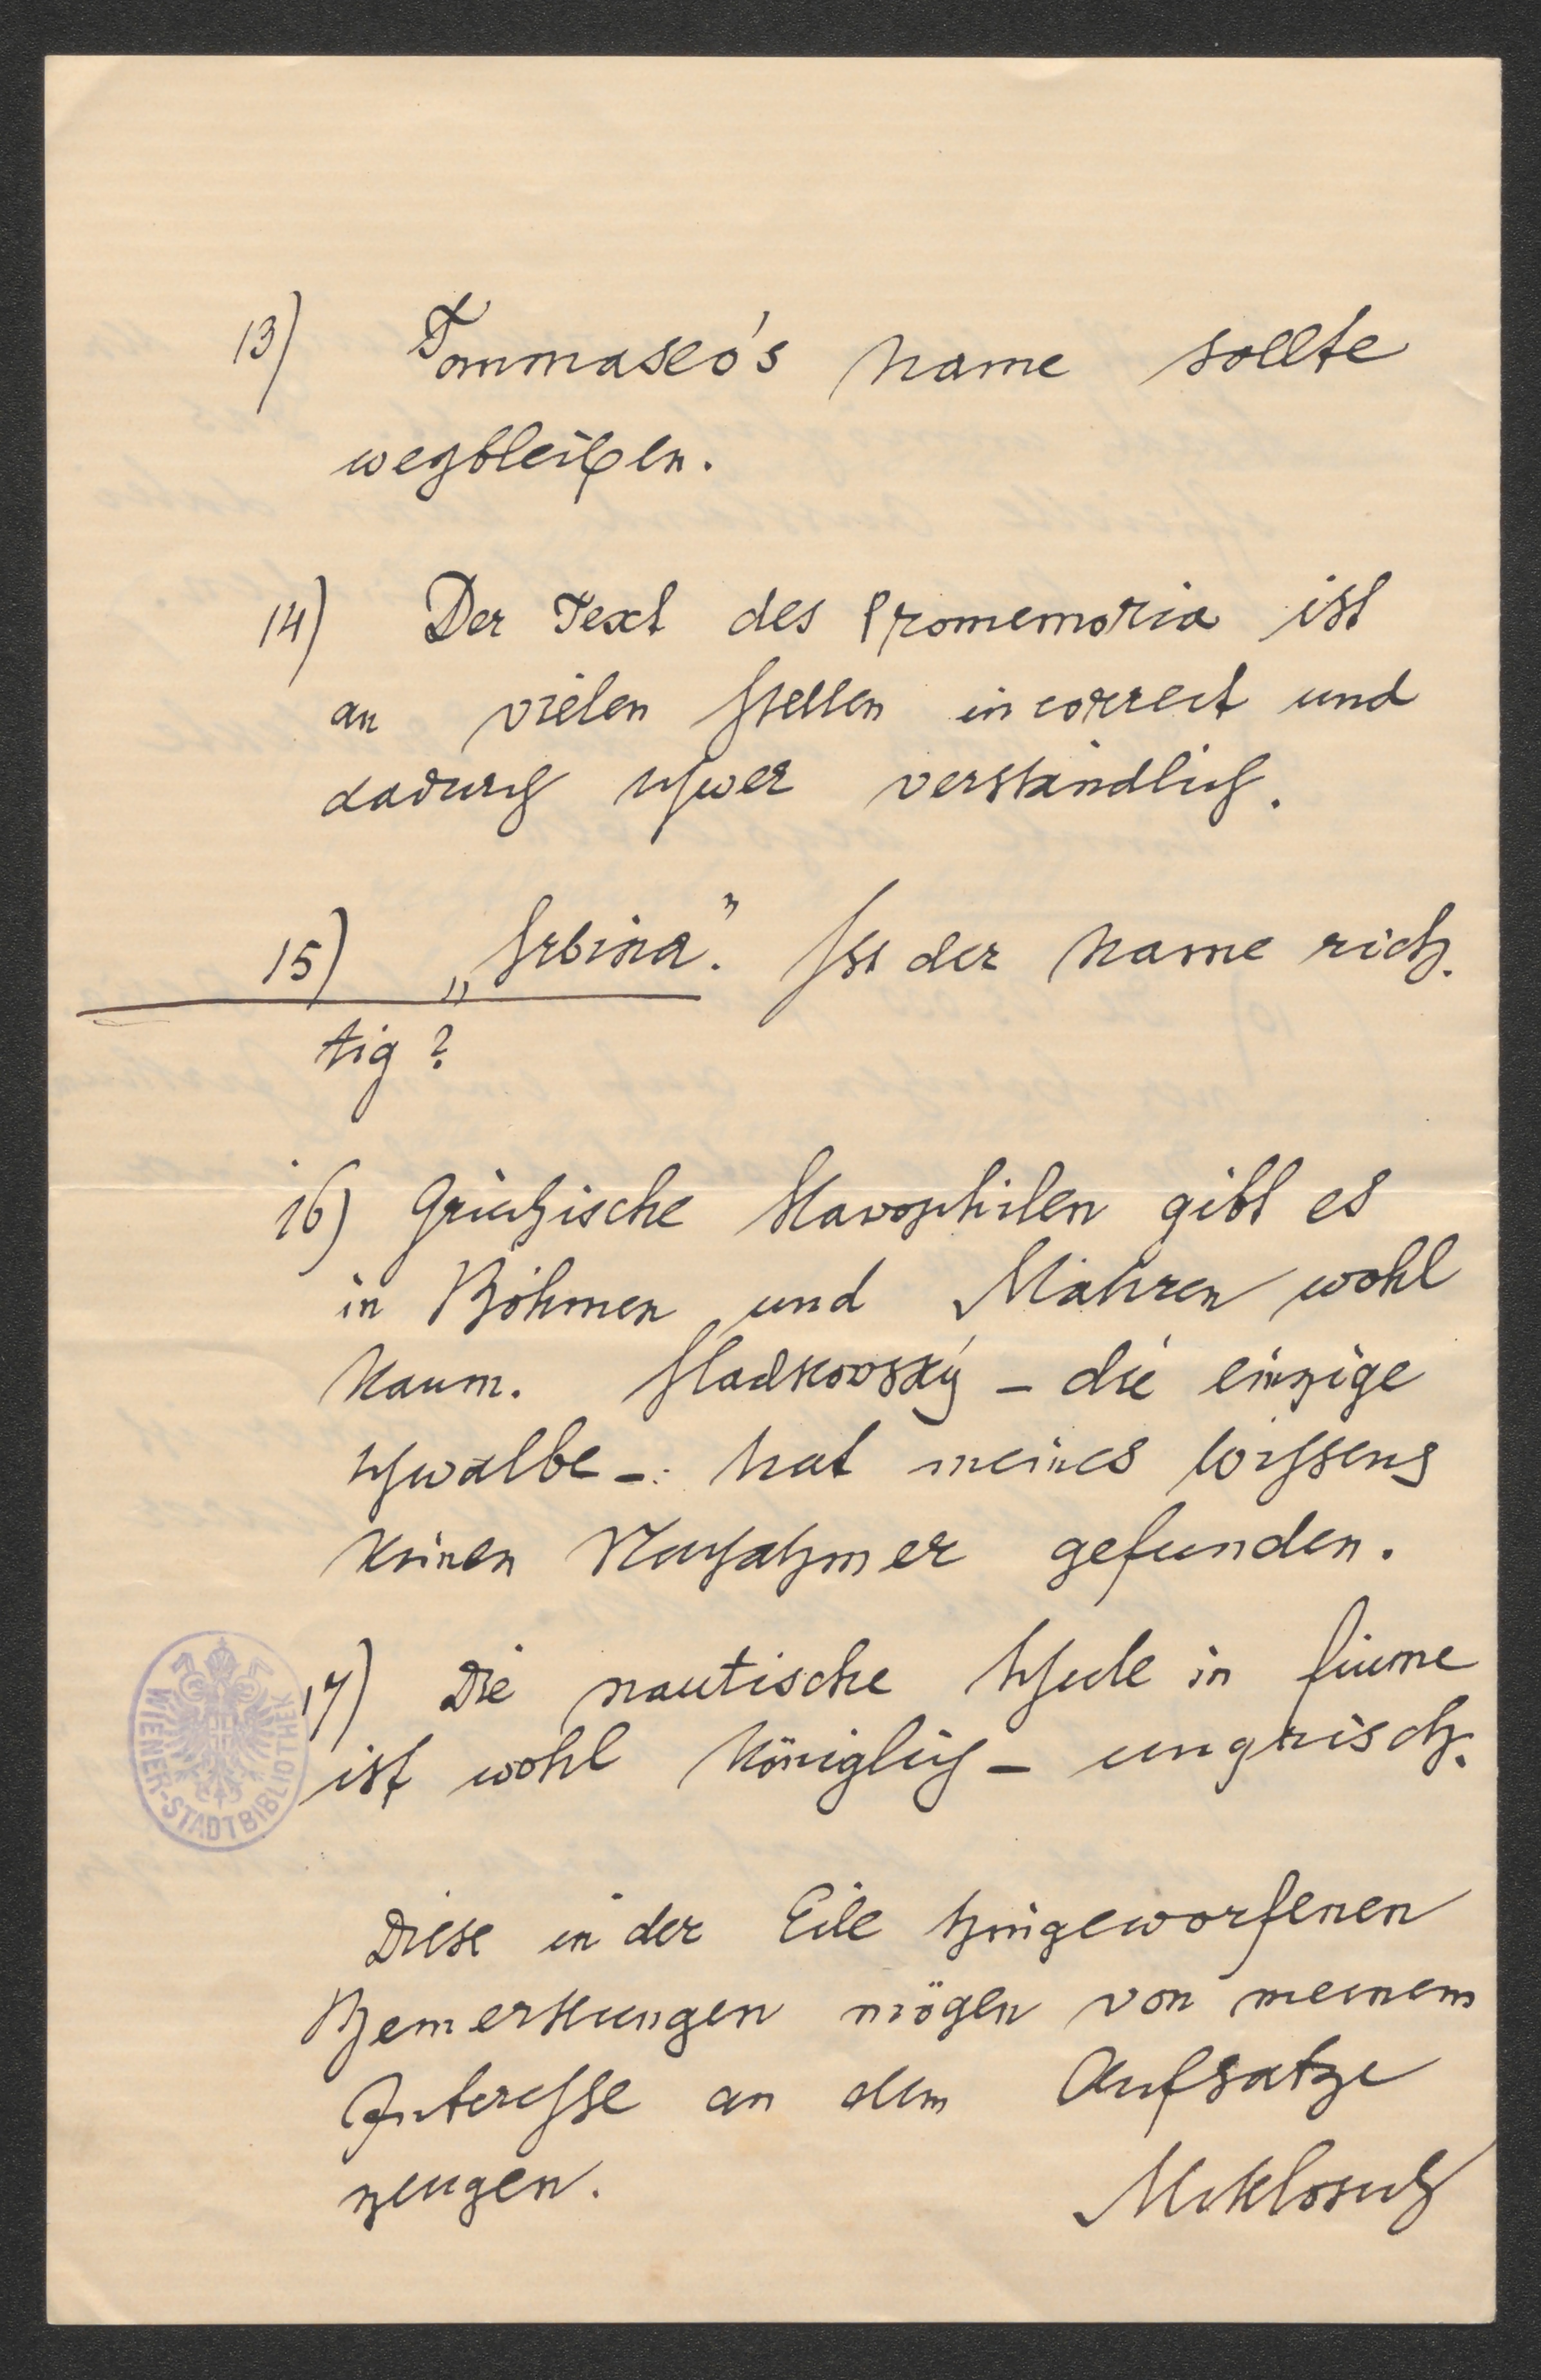 13) Tommaseo's Name sollte
wegbleiben.
14) Der Text des Promemoria ist
an vielen Stellen incorrect und
dadurch schwer verständlich.
15) „Srbina". Ist der Name rich-
tig?
16) Griechische Slavophilen gibt es
in Böhmen und Mähren wohl
kaum. Sladkovský – die einzige
Schwalbe – hat meines Wissens
keinen Nachahmer gefunden.
17) Die nautische Schule in Fiume
ist wohl königlich-ungrisch.
Diese in der Eile hingeworfenen
Bemerkungen mögen von meinem
Interesse an dem Aufsatze
zeugen.
Miklosich
WIENER-STADTBIBLIOTHEK